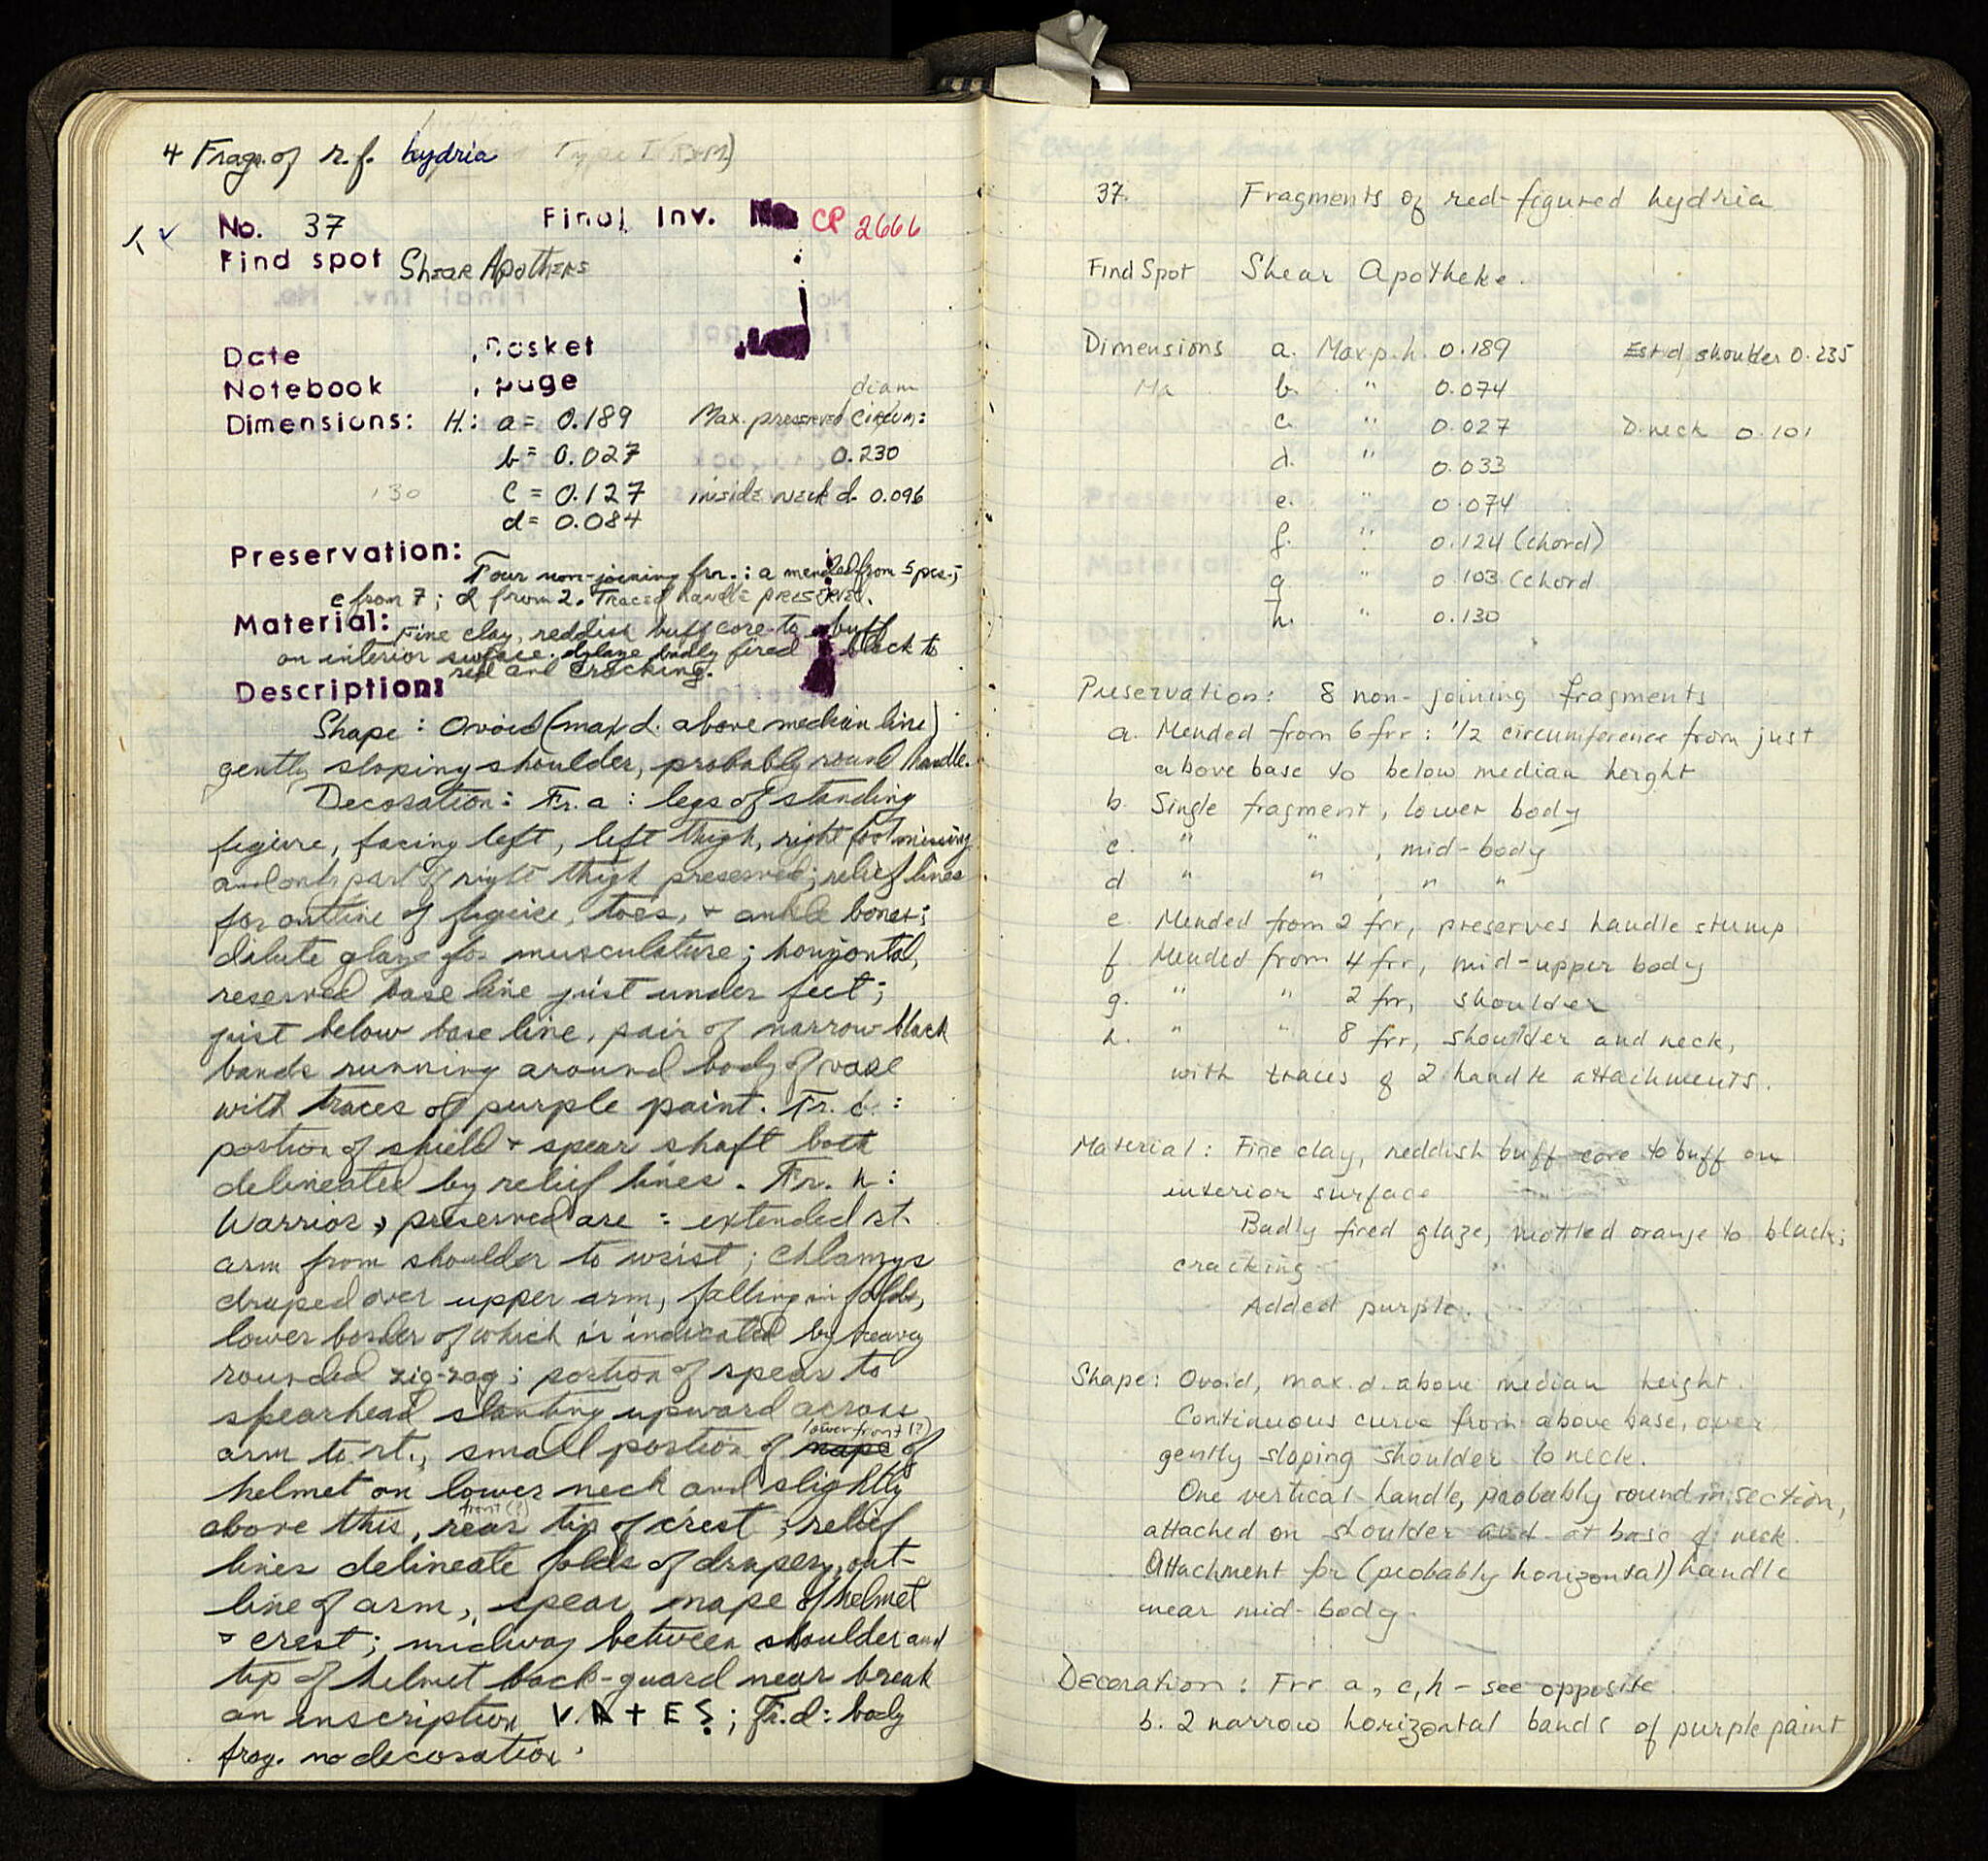 4 Frags. of r.f. hydria Type I
No. 37 Final Inv. No. CP 2666
Find spot Shear Apotheke
Date , Basket
Notebook , page
diam
Dimensions: H.: a = 0.189 Max. preserved circum:
b = 0.027 0.230
130 c = 0.127 inside neck d. 0.096
d = 0.084
Preservation:
Four non-joining frr.: a mended from 5 pcs.;
c from 7; d from 2. Traces handle preserved.
Material: Fine clay, reddish buff core to buff
on interior surface. glaze badly fired black to
red and cracking.
Description:
Shape: Ovoid (max d. above median line)
gently sloping shoulder, probably round handle.
Decoration: Fr. a: legs of standing
figure, facing left, left thigh, right foot missing
and only part of right thigh preserved; relief lines
for outline of figure, toes, + ankle bones;
dilute glaze for musculature; horizontal,
reserved base line just under feet;
just below base line, pair of narrow black
bands running around body of vase
with traces of purple paint. Fr. c:
portion of shield + spear shaft both
delineated by relief lines. Fr. h:
Warrior, preserved are: extended rt.
arm from shoulder to wrist; chlamys
draped over upper arm, falling in folds,
lower border of which is indicated by heavy
rounded zig-zag; portion of spear to
spearhead slanting upward across
lower front (?)
arm to rt., small portion of nape of
helmet on lower neck and slightly
front (?)
above this, rear tip of crest; relief
lines delineate folds of drapery, out-
line of arm, spear, nape of helmet
+ crest; midway between shoulder and
tip of helmet back-guard near break
an inscription V.A+ES; Fr. d: body
frag. no decoration.
37. Fragments of red-figured hydria
Find Spot Shear Apotheke.
Dimensions a. Max p.h. 0.189 Est d. shoulder 0.235
Ma b. " 0.074
c. " 0.027 D. neck 0.101
d. " 0.033
e. " 0.074
f. " 0.124 (chord)
g. " 0.103 (chord
h. " 0.130
Preservation: 8 non-joining fragments
a. Mended from 6 frr: 1/2 circumference from just
above base to below median height
b. Single fragment, lower body
c. " " , mid-body
d " " , " "
e. Mended from 2 frr, preserves handle stump
f. Mended from 4 frr, mid-upper body
g. " " 2 frr, shoulder
h. " " 8 frr, shoulder and neck,
with traces of 2 handle attachments.
Material: Fine clay, reddish buff core to buff on
interior surface
Badly fired glaze, mottled orange to black;
cracking
Added purple.
Shape: Ovoid, max. d. above median height.
Continuous curve from above base, over
gently sloping shoulder to neck.
One vertical handle, probably round in section,
attached on shoulder and at base of neck.
Attachment for (probably horizontal) handle
near mid-body.
Decoration: Frr a, c, h - see opposite.
b. 2 narrow horizontal bands of purple paint